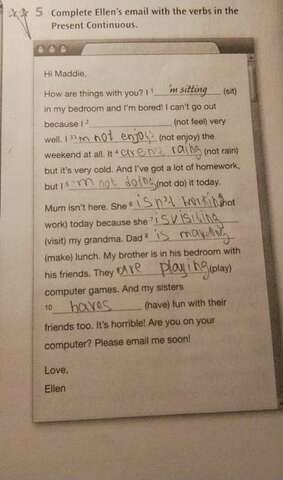 5 Complete Ellen's email with the verbs in the
Present Continuous.
Hi Maddie,
How are things with you? I 1 'm sitting (sit)
in my bedroom and I'm bored! I can't go out
because I 2 (not feel) very
well. I 3 'm not enjoy (not enjoy) the
weekend at all. It 4 arent raing (not rain)
but it's very cold. And I've got a lot of homework,
but I 5 'm not doing (not do) it today.
Mum isn't here. She 6 isn't working (not
work) today because she 7 isvisiting
(visit) my grandma. Dad 8 is
(make) lunch. My brother is in his bedroom with
his friends. They are playing (play)
computer games. And my sisters
10 haves (have) fun with their
friends too. It's horrible! Are you on your
computer? Please email me soon!
Love,
Ellen